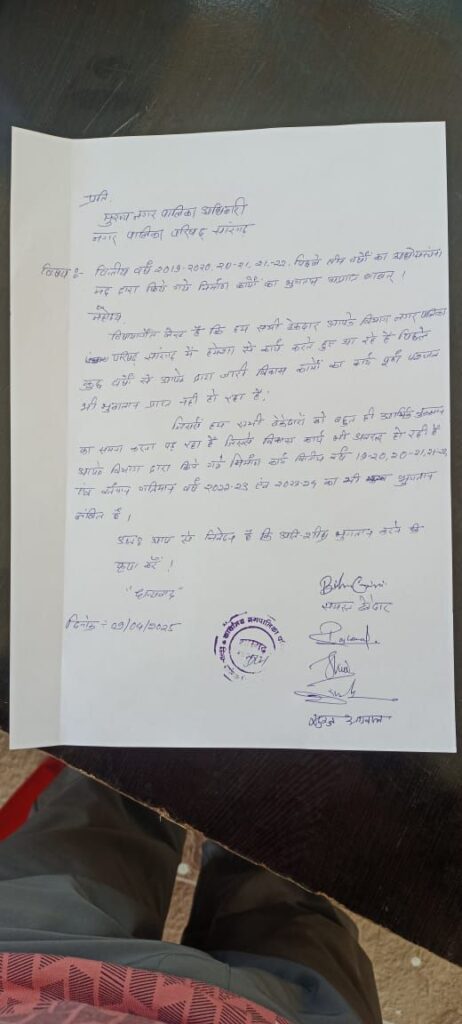 प्रति,
मुख्य नगर पालिका अधिकारी
नगर पालिका परिषद् सारंगढ़
विषय :- वित्तीय वर्ष 2019-2020, 20-21, 21-22, पिछले तीन वर्षों का
मद द्वारा किये गये निर्माण कार्यों का भुगतान बाबत् !
महोदय
विषयांतर्गत लेख है कि हम सभी ठेकेदार आपके विभाग नगर पालिका
परिषद् सारंगढ़ में हमेशा से कार्य करते हुए आ रहे है पिछले
कुछ वर्षों से आपके द्वारा जारी विकास कार्यों का कार्य पूर्ण
भी भुगतान प्राप्त नहीं हो रहा है.
जिससे हम सभी ठेकेदारों को बहुत ही आर्थिक नुकसान
का सामना करना पड़ रहा है जिससे विकास कार्य भी हो रही है
आपके विभाग द्वारा किये गये निर्माण कार्य वित्तीय वर्ष 19-20, 20-21, 21-22
एवं वर्तमान वर्ष 2022-23 एवं 2023-24 का भी भुगतान
लंबित है ।
अतः आप से निवेदन है कि अति-शीघ्र भुगतान करने कि
कृपा करें !
"धन्यवाद"
दिनांक - 09/04/2025
समस्त ठेकेदार
अग्रवाल